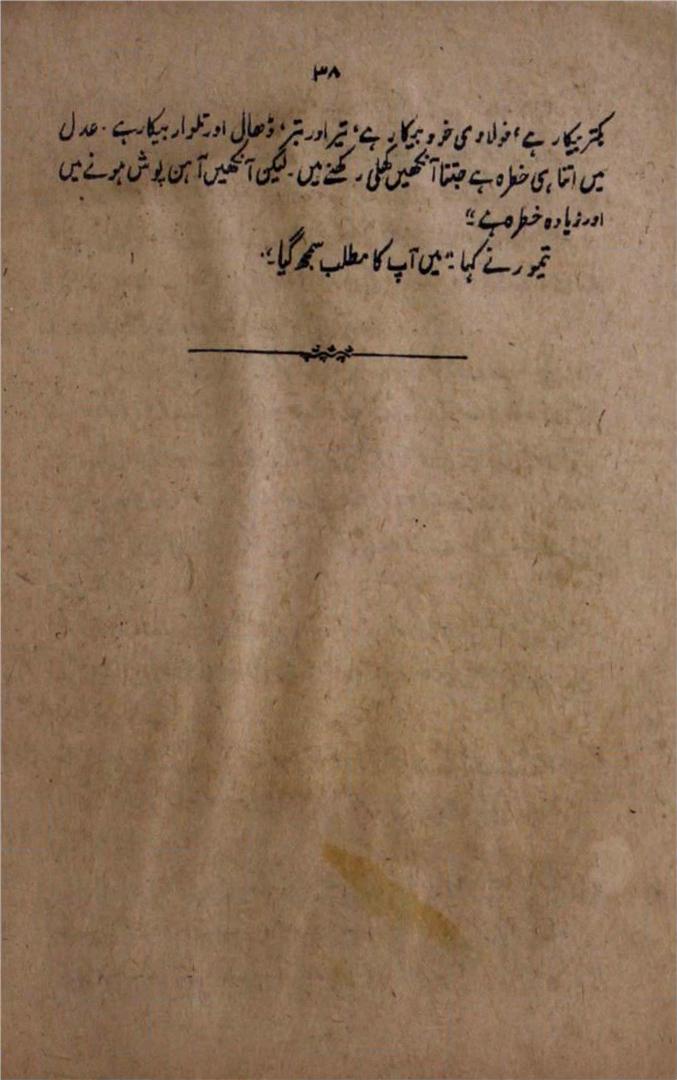 ۳۸
بکتر بیکار ہے، فولادی خود بیکار ہے، تیر اور تبر، ڈھال اور تلوار بیکار ہے۔ عدل
میں اتنا ہی خطرہ ہے جتنا آنکھیں کھلی رکھنے میں۔ لیکن آنکھیں آہن پوش ہونے میں
اور زیادہ خطرہ ہے۔"
تیمور نے کہا۔ "میں آپ کا مطلب سمجھ گیا۔"